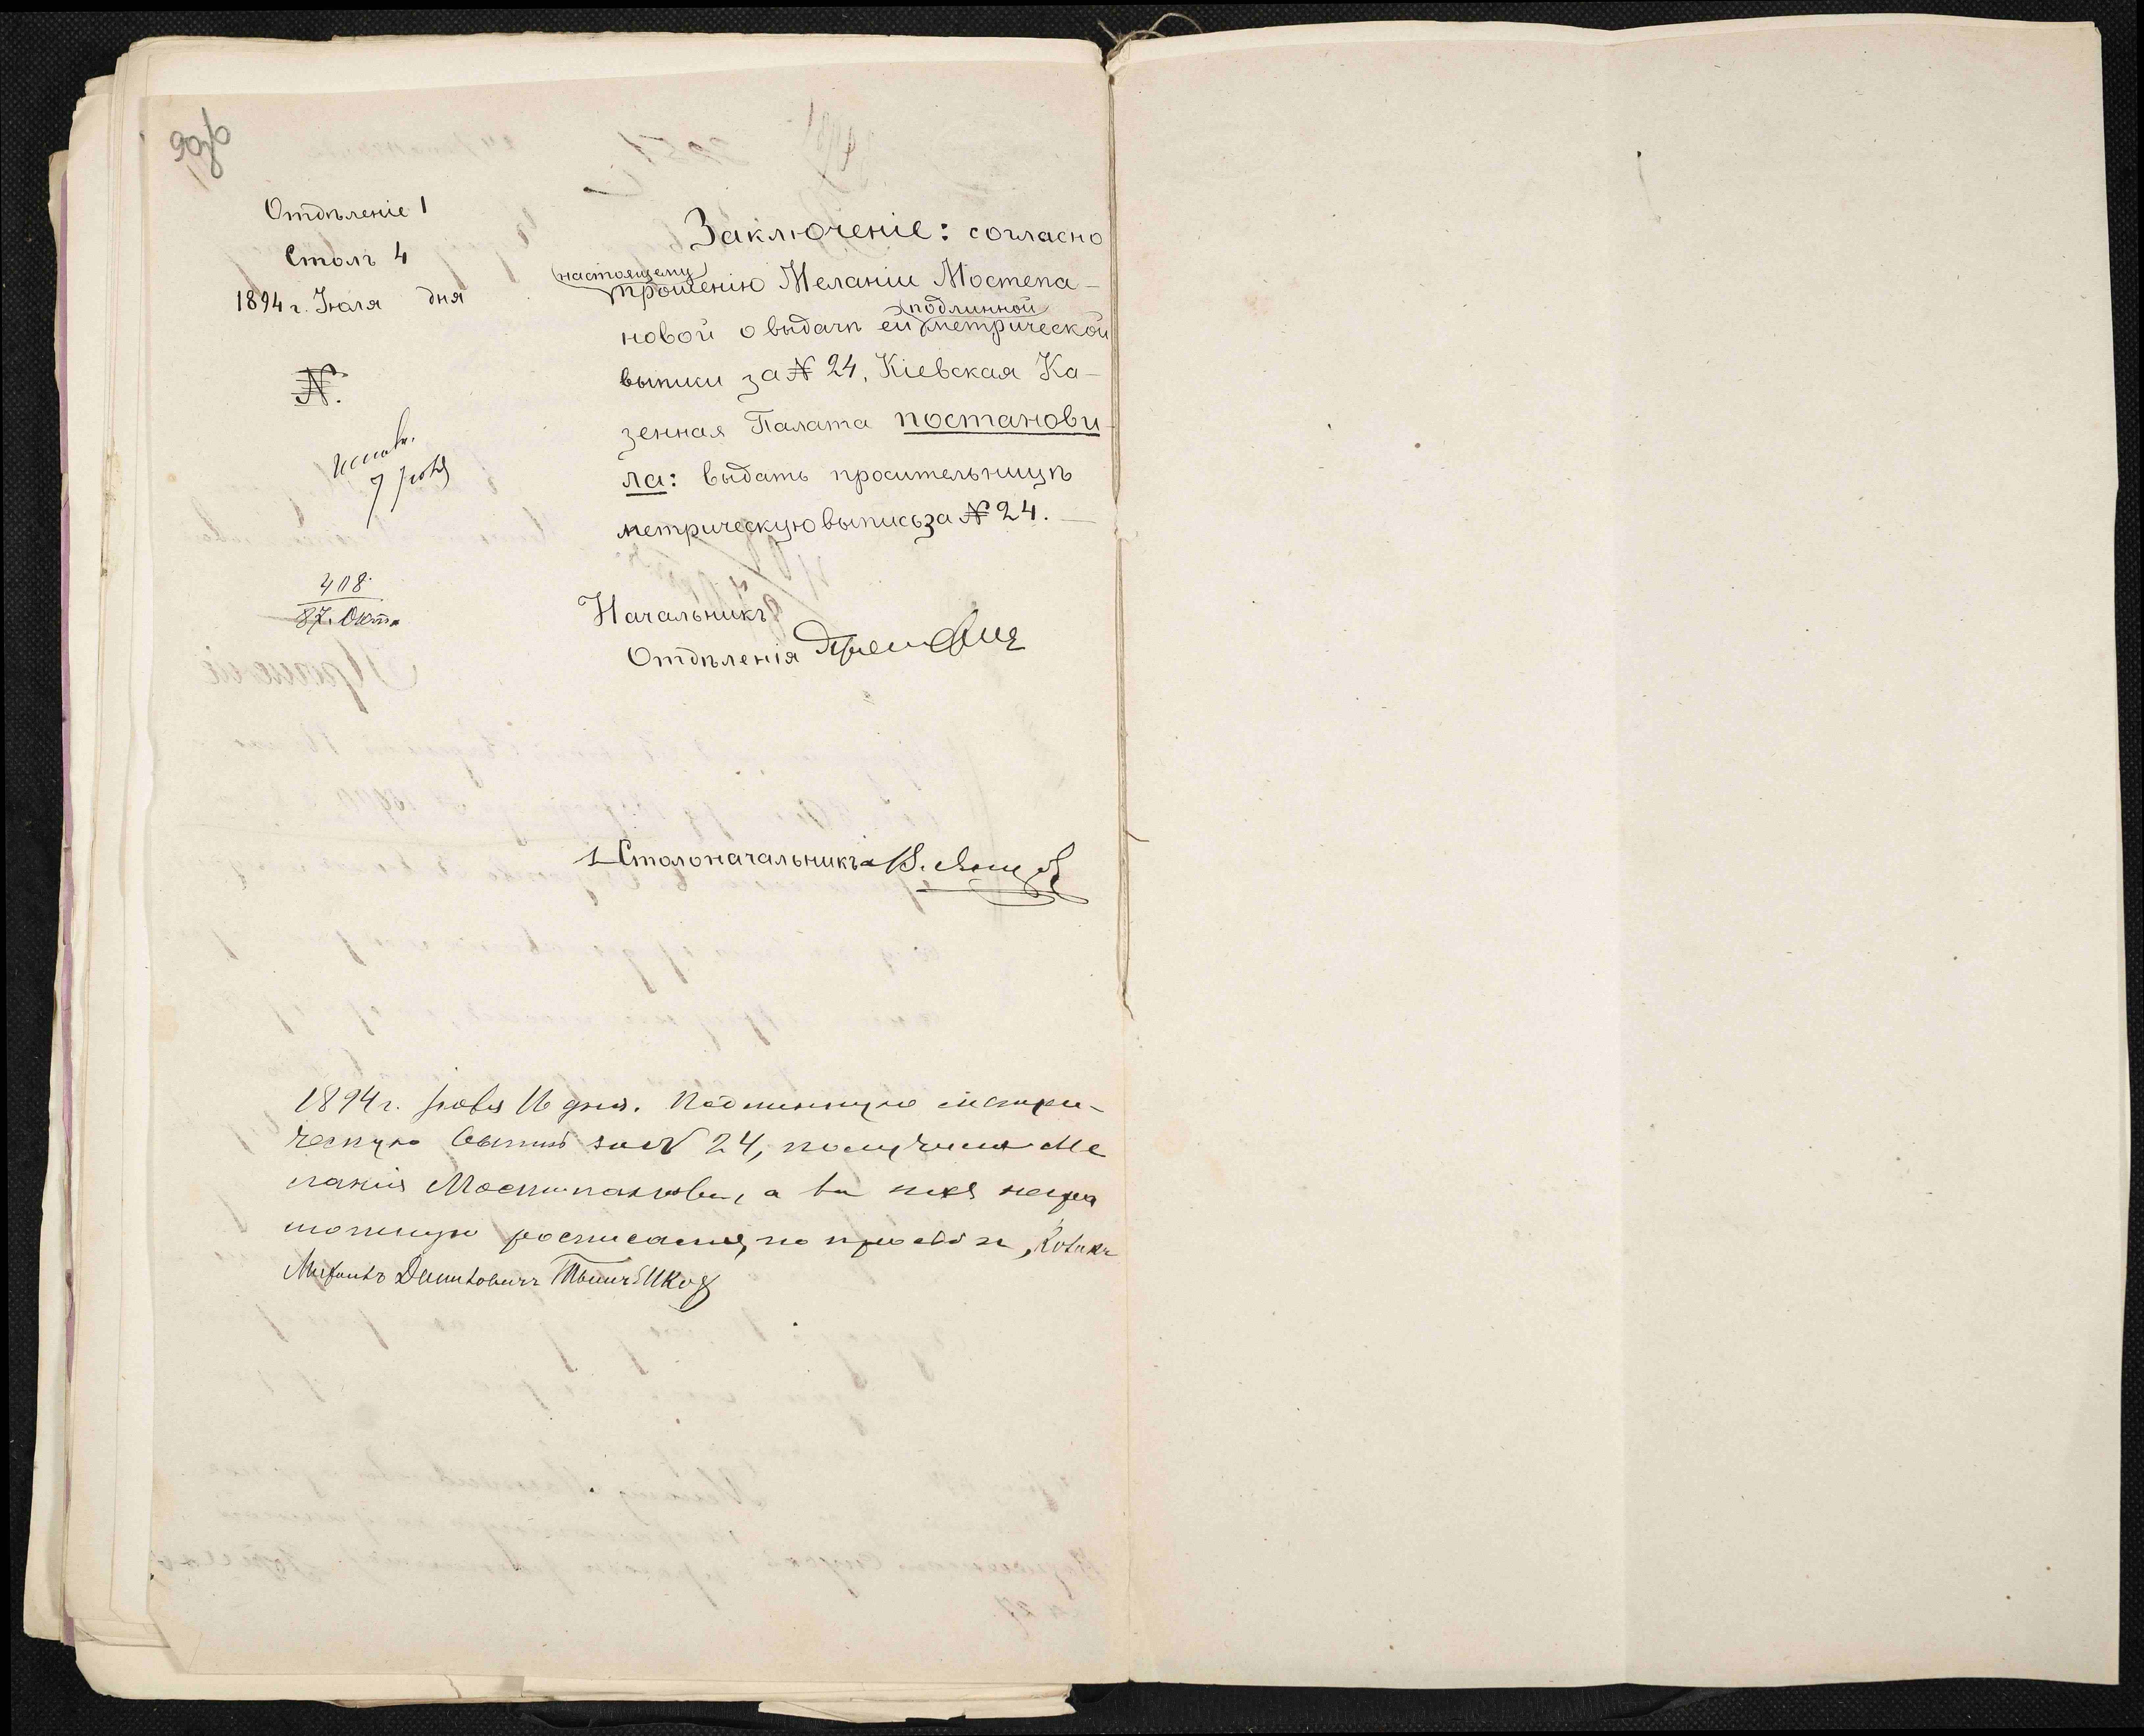 90б
Отдѣленіе 1
Столъ 4
1894 г. Іюля дня
№.
7 Іюля
408
87. Окт.
Заключеніе: согласно
настоящему
прошенію Меланіи Мостепа-
подлинной
новой о выдачѣ ей метрической
выписи за № 24, Кіевская Ка-
зенная Палата постанови
ла: выдать просительницѣ
метрическую выпись за № 24. —
Начальникъ
Отдѣленія
Столоначальникъ В.
1894 г. Іюля 16 дня. Подлинную метри-
ческую выпись за № 24, получила Ме
ланія Мостипанова, а за нея негра
мотную росписался, по прозбѣ